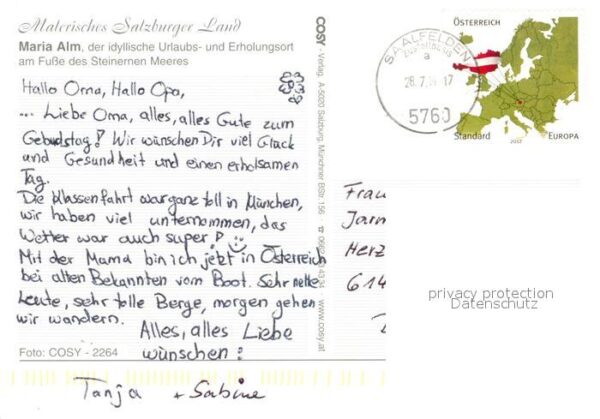 Malerisches Salzburger Land
Maria Alm, der idyllische Urlaubs- und Erholungsort
am Fuße des Steinernen Meeres
Hallo Oma, Hallo Opa,
... Liebe Oma, alles, alles Gute zum
Geburtstag! Wir wünschen Dir viel Glück
und Gesundheit und einen erholsamen
Tag.
Die Klassenfahrt war ganz toll in München,
wir haben viel unternommen, das
Wetter war auch super!
Mit der Mama bin ich jetzt in Österreich
bei alten Bekannten vom Boot. Sehr nette
Leute, sehr tolle Berge, morgen gehen
wir wandern.
Alles, alles Liebe
wünschen:
Foto: COSY - 2264
Tanja + Sabine
COSY Verlag, A-5020 Salzburg, Münchner BStr. 156
www.cosy.at
SAALFELDEN
a
5760
ÖSTERREICH
Standard 2017 EUROPA
Frau
Jann
Herz
614
privacy protection
Datenschutz